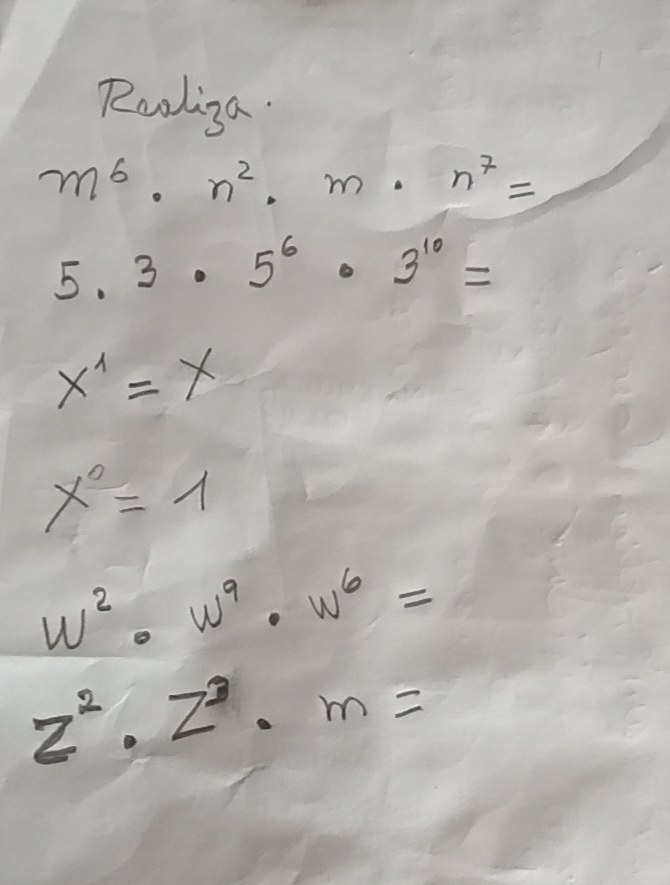 Realiza.
m⁶ . n² . m . n⁷ =
5 . 3 . 5⁶ . 3¹⁰ =
x¹ = x
x⁰ = 1
w² . w⁹ . w⁶ =
z² . z³ . m =